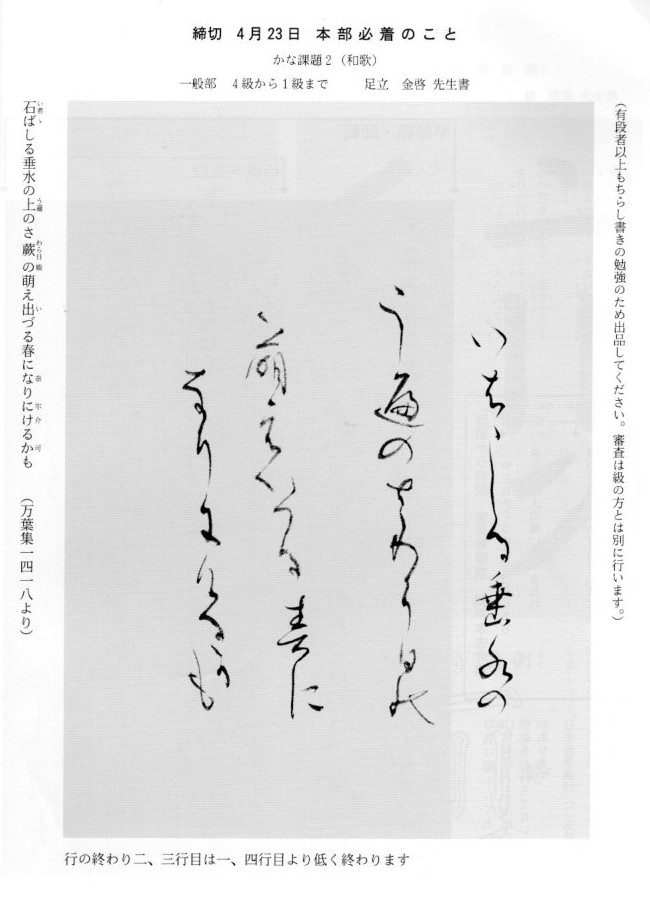 締切　4月23日　本部必着のこと
かな課題2（和歌）
一般部　4級から1級まで　　足立　金啓 先生書
（有段者以上もちらし書きの勉強のため出品してください。審査は級の方とは別に行います。）
いはゝしる垂水の
う遍のさわら日能
萌えいづる春に
奈りにけるかも
石ばしる垂水の上のさ蕨の萌え出づる春になりにけるかも　（万葉集一四一八より）
行の終わり二、三行目は一、四行目より低く終わります